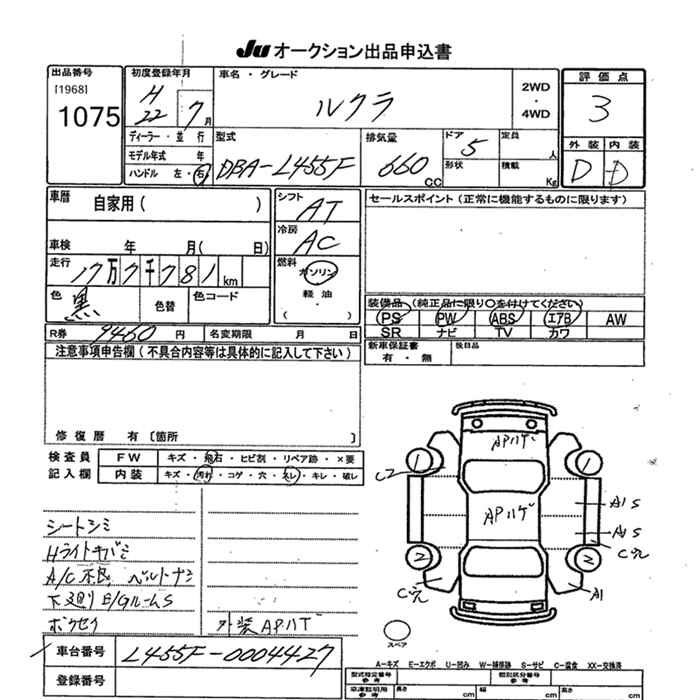 Ju オークション出品申込書
出品番号 初度登録年月 車名・グレード 2WD・4WD 評価点
[1968]
1075 H22 7月 ルクラ 3
ディーラー・並行 型式 排気量 ドア 定員 人 外装 内装
モデル年式 年 DBA-L455F 660CC 5 形状 積載 Kg D D
ハンドル 左・右
車歴 自家用( ) シフト AT セールスポイント(正常に機能するものに限ります)
冷房 AC
車検 年 月( 日)
走行 17万7千781km 燃料 ガソリン
色 黒 色替 色コード 軽油
( )
装備品(純正品に限り○を付けてください)
PS PW ABS エアB AW
SR ナビ TV カワ
R券 9460円 名変期限 月 日
新車保証書 有・無 後日品
注意事項申告欄(不具合内容等は具体的に記入して下さい)
修復歴 有〔箇所
検査員 FW キズ・飛石・ヒビ割・リペア跡・×要
記入欄 内装 キズ・汚れ・コゲ・穴・スレ・キレ・破レ
APハゲ
1 1
APハゲ
A1 S
A1 S
C穴
2 2
C穴 A1
スペア
シートシミ
Hライトキバミ
A/C不良 ベルトナシ
下廻り E/GルームS
ボクセイ 外装APハゲ
車台番号 L455F-0004427
登録番号
A-キズ E-エクボ U-凹み W-補修跡 S-サビ C-腐食 XX-交換済
型式指定番号 参考 類別区分番号 参考
車庫証明用 参考 長さ cm 幅 cm 高さ cm